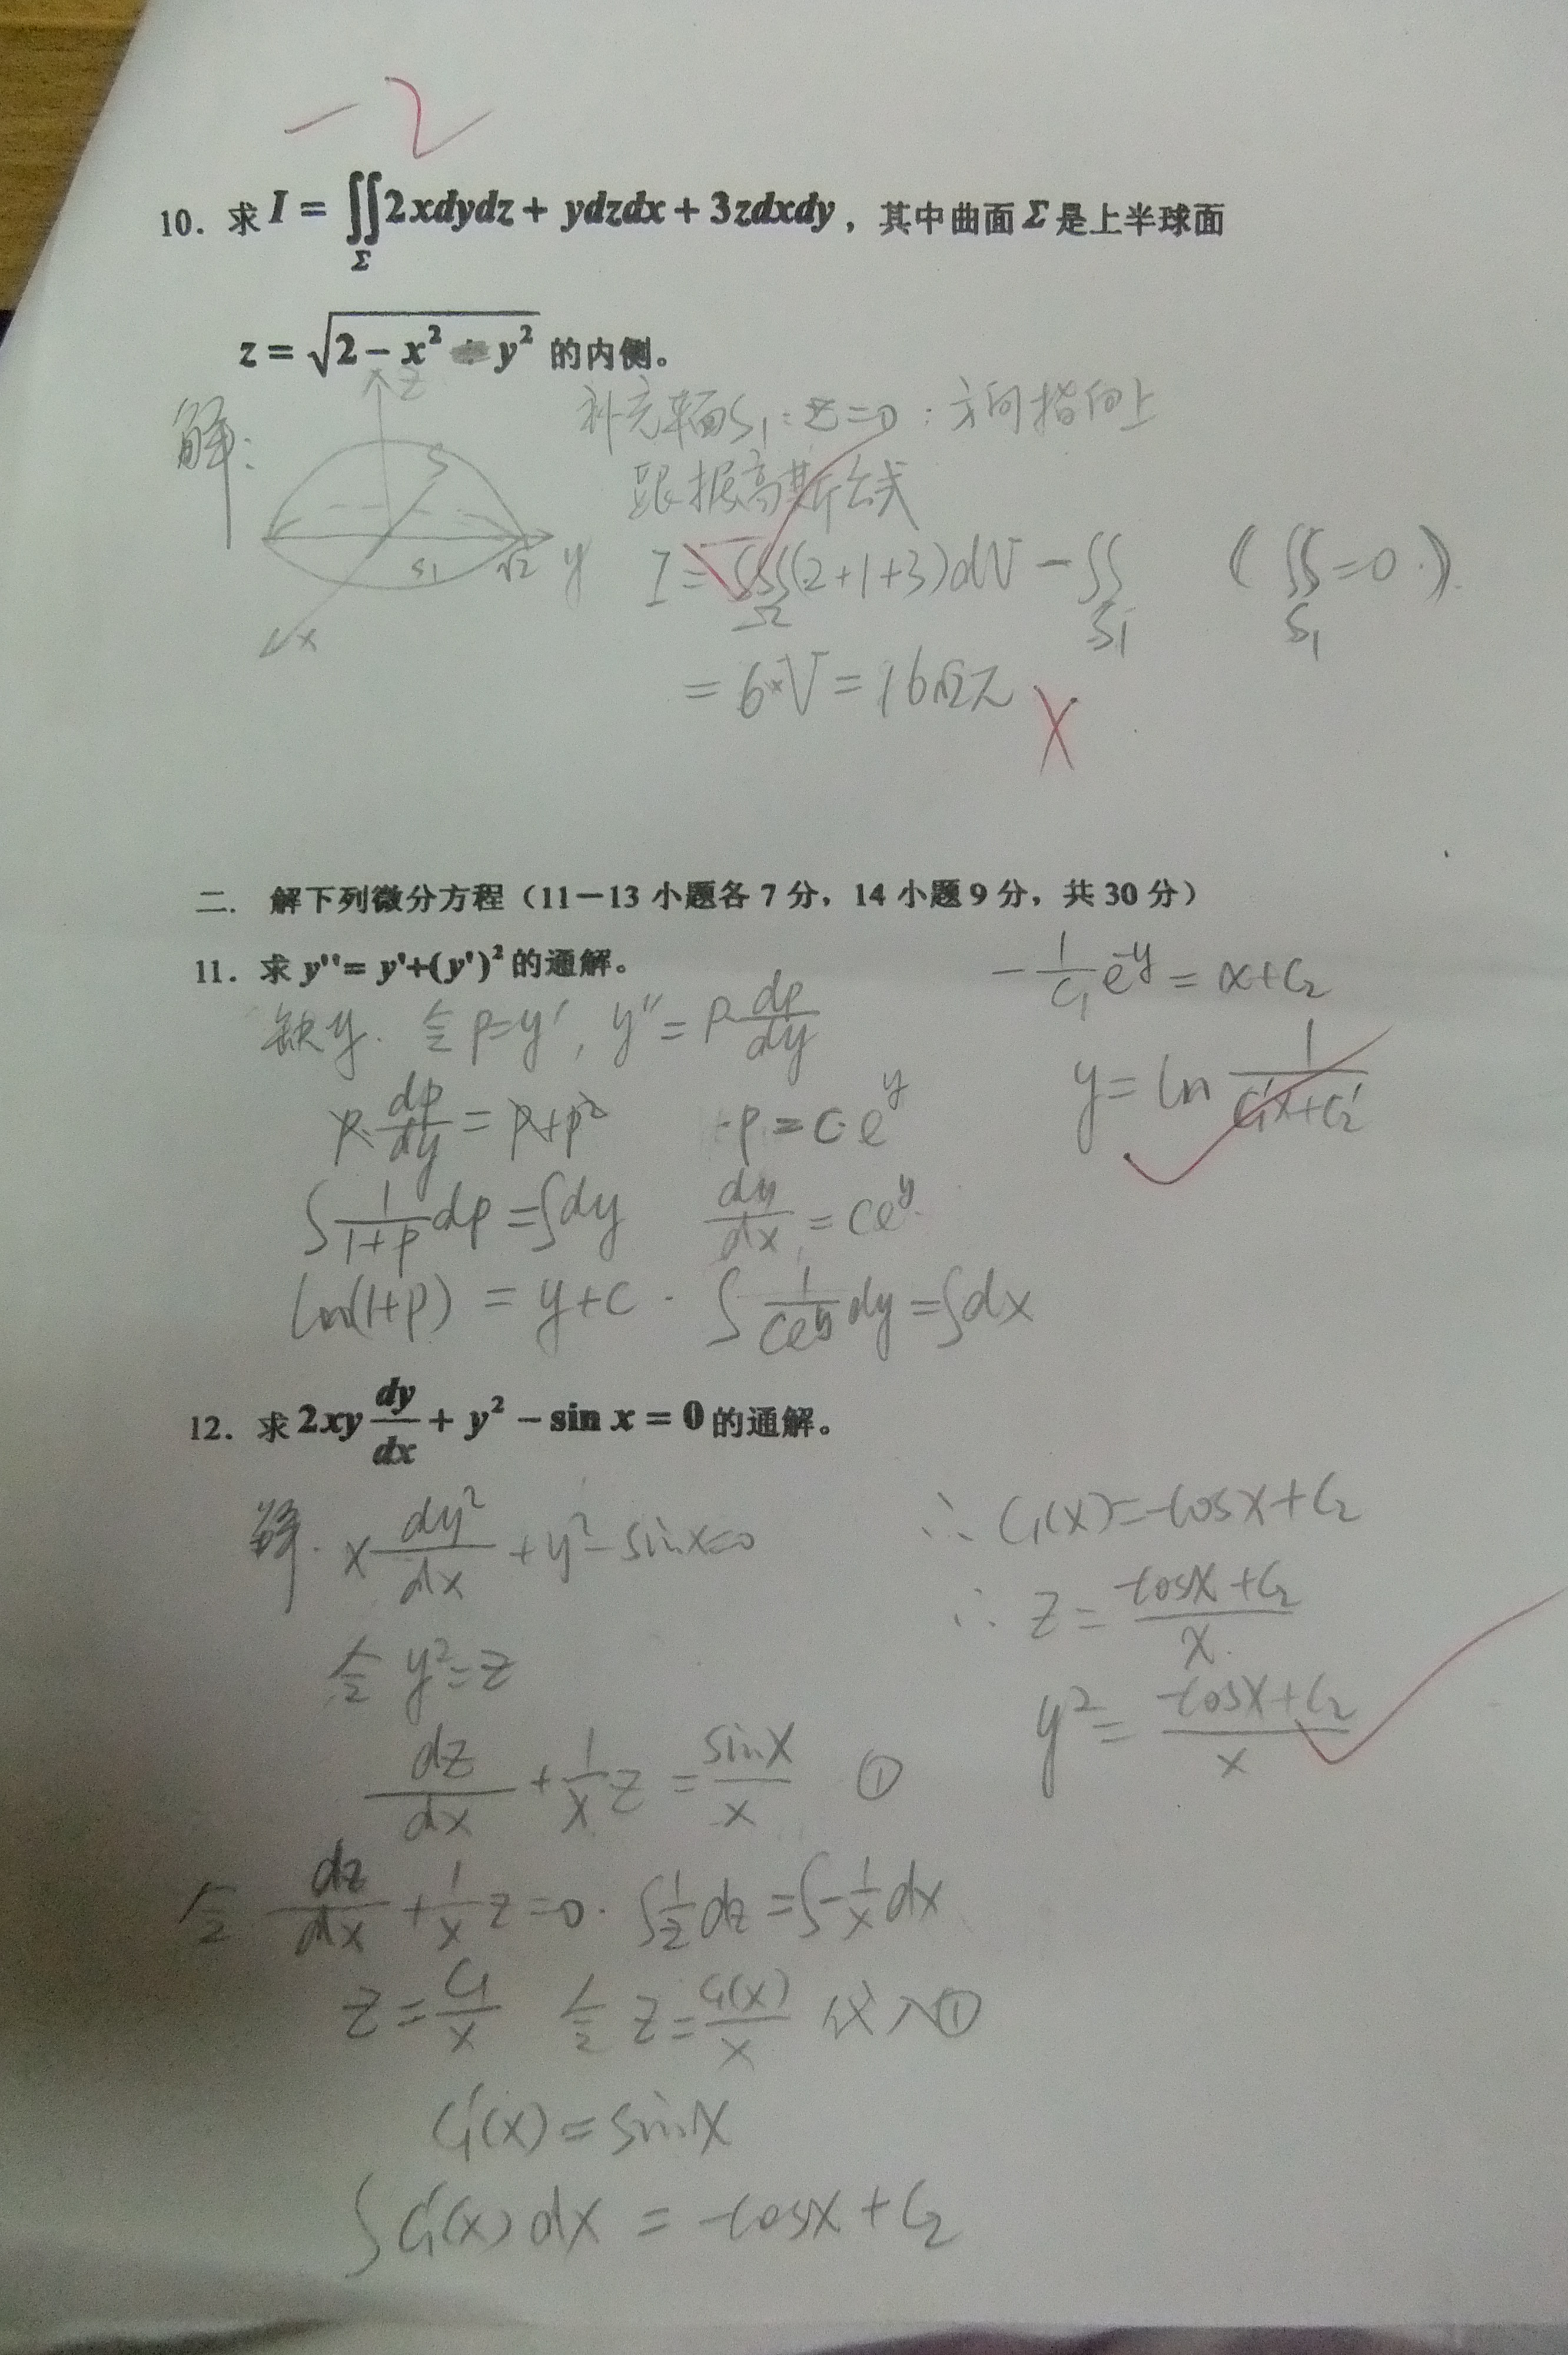 -2
10. 求 I = ∬_Σ 2xdydz + ydzdx + 3zdxdy，其中曲面 Σ 是上半球面
z = √(2 − x² − y²) 的内侧。
解:
z
S
S₁
√2
y
x
补充平面S₁: z=0 : 方向指向上
跟据高斯公式
I = ∭_Ω (2+1+3)dV − ∬_S₁ (∬_S₁ = 0.)
= 6·V = 16√2π
二. 解下列微分方程（11－13 小题各 7 分，14 小题 9 分，共 30 分）
11. 求 y''= y'+(y')² 的通解。
缺y. 令 p=y', y''= p dp/dy
p·dp/dy = p+p²
∫ 1/(1+p) dp = ∫dy
ln(1+p) = y+c.
p = c·e^y
dy/dx = ce^y.
∫ 1/(ce^y) dy = ∫dx
−1/c₁ e^-y = x+c₂
y = ln 1/(c₁'x+c₂')
12. 求 2xy dy/dx + y² − sin x = 0 的通解。
解. x dy²/dx + y² − sinx=0
令 y²=z
dz/dx + 1/x z = sinx/x ①
令 dz/dx + 1/x z = 0. ∫1/z dz = ∫−1/x dx
z = c₁/x 令 z = c₁(x)/x 代入①
c₁'(x) = sinx
∫c₁'(x)dx = −cosx + c₂
∴ c₁(x) = −cosx + c₂
∴ z = (−cosx + c₂)/x
y² = (−cosx + c₂)/x